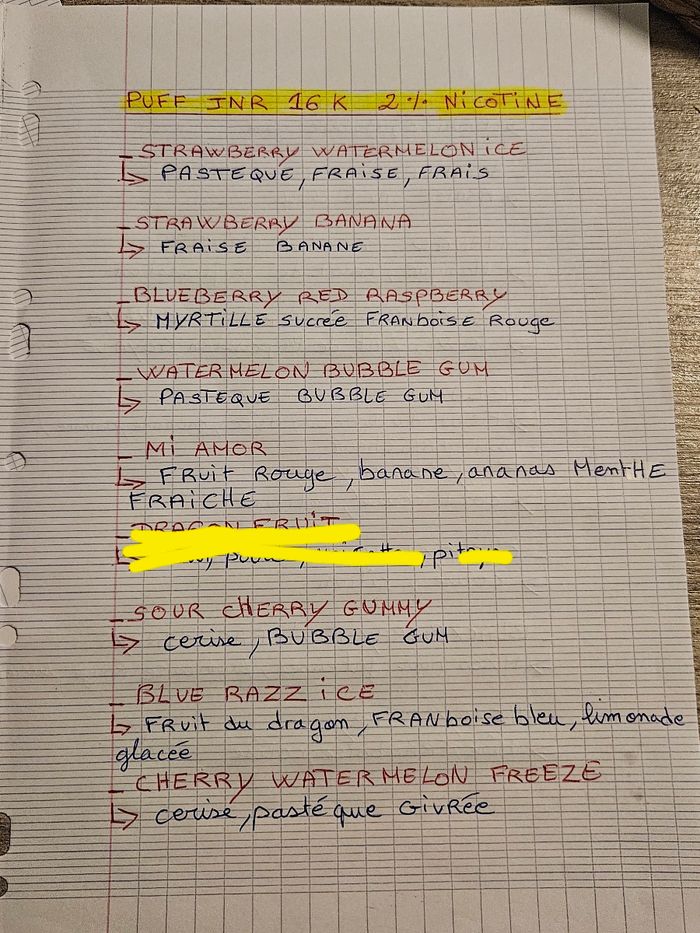 PUFF JNR 16 K 2 % NICOTINE
_ STRAWBERRY WATERMELON ICE
↳ PASTEQUE, FRAISE, FRAIS
_ STRAWBERRY BANANA
↳ FRAISE BANANE
_ BLUEBERRY RED RASPBERRY
↳ MYRTILLE sucrée FRANboise Rouge
_ WATERMELON BUBBLE GUM
↳ PASTEQUE BUBBLE GUM
_ Mi AMOR
↳ FRuit Rouge, banane, ananas MentHE
FRAICHE
_ DRAGON FRUIT
_ SOUR CHERRY GUMMY
↳ cerise, BUBBLE GUM
_ BLUE RAZZ iCE
↳ FRuit du dragon, FRANboise bleu, limonade
glacée
_ CHERRY WATERMELON FREEZE
↳ cerise, pastéque GIVRÉE